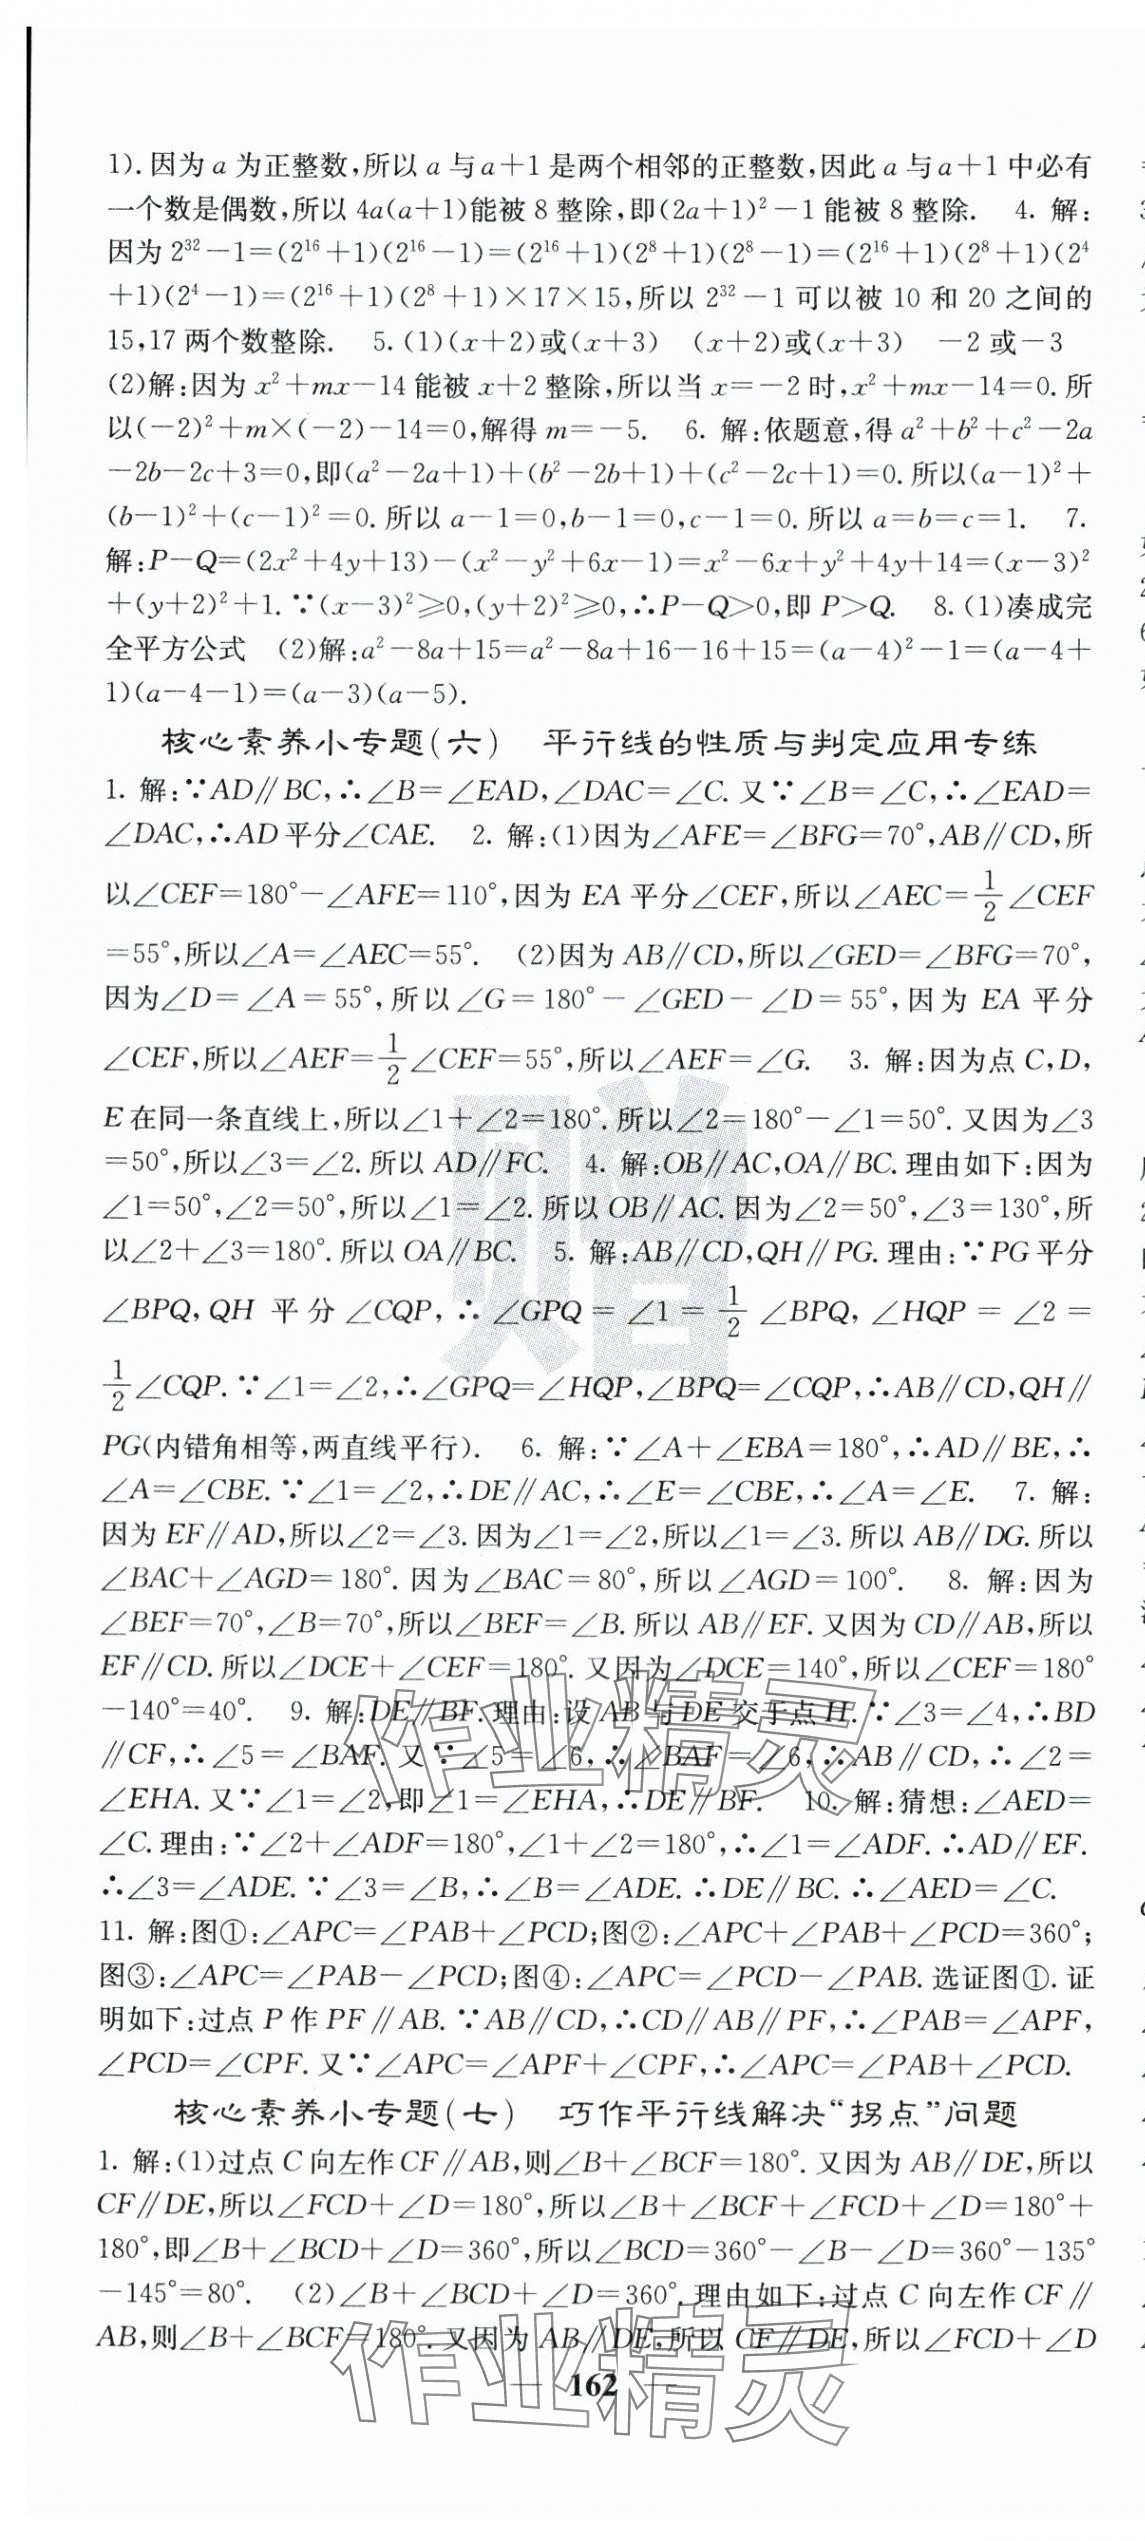 1).因为 a 为正整数,所以 a 与 a+1 是两个相邻的正整数,因此 a 与 a+1 中必有
一个数是偶数,所以 4a(a+1)能被 8 整除,即(2a+1)²-1 能被 8 整除. 4. 解:
因为 2³²-1=(2¹⁶+1)(2¹⁶-1)=(2¹⁶+1)(2⁸+1)(2⁸-1)=(2¹⁶+1)(2⁸+1)(2⁴
+1)(2⁴-1)=(2¹⁶+1)(2⁸+1)×17×15,所以 2³²-1 可以被 10 和 20 之间的
15,17 两个数整除. 5. (1)(x+2)或(x+3) (x+2)或(x+3) -2 或-3
(2)解:因为 x²+mx-14 能被 x+2 整除,所以当 x=-2 时,x²+mx-14=0. 所
以(-2)²+m×(-2)-14=0,解得 m=-5. 6. 解:依题意,得 a²+b²+c²-2a
-2b-2c+3=0,即(a²-2a+1)+(b²-2b+1)+(c²-2c+1)=0. 所以(a-1)²+
(b-1)²+(c-1)²=0. 所以 a-1=0,b-1=0,c-1=0. 所以 a=b=c=1. 7.
解:P-Q=(2x²+4y+13)-(x²-y²+6x-1)=x²-6x+y²+4y+14=(x-3)²
+(y+2)²+1. ∵(x-3)²≥0,(y+2)²≥0,∴P-Q>0,即 P>Q. 8. (1)凑成完
全平方公式 (2)解:a²-8a+15=a²-8a+16-16+15=(a-4)²-1=(a-4+
1)(a-4-1)=(a-3)(a-5).
核心素养小专题(六) 平行线的性质与判定应用专练
1. 解:∵AD∥BC,∴∠B=∠EAD,∠DAC=∠C. 又∵∠B=∠C,∴∠EAD=
∠DAC,∴AD 平分∠CAE. 2. 解:(1)因为∠AFE=∠BFG=70°,AB∥CD,所
以∠CEF=180°-∠AFE=110°,因为 EA 平分∠CEF,所以∠AEC=1/2∠CEF
=55°,所以∠A=∠AEC=55°. (2)因为 AB∥CD,所以∠GED=∠BFG=70°,
因为∠D=∠A=55°,所以∠G=180°-∠GED-∠D=55°,因为 EA 平分
∠CEF,所以∠AEF=1/2∠CEF=55°,所以∠AEF=∠G. 3. 解:因为点 C,D,
E 在同一条直线上,所以∠1+∠2=180°. 所以∠2=180°-∠1=50°. 又因为∠3
=50°,所以∠3=∠2. 所以 AD∥FC. 4. 解:OB∥AC,OA∥BC. 理由如下:因为
∠1=50°,∠2=50°,所以∠1=∠2. 所以 OB∥AC. 因为∠2=50°,∠3=130°,所
以∠2+∠3=180°. 所以 OA∥BC. 5. 解:AB∥CD,QH∥PG. 理由:∵PG 平分
∠BPQ, QH 平分∠CQP, ∴∠GPQ=∠1=1/2∠BPQ, ∠HQP=∠2=
1/2∠CQP. ∵∠1=∠2,∴∠GPQ=∠HQP,∠BPQ=∠CQP,∴AB∥CD,QH∥
PG(内错角相等,两直线平行). 6. 解:∵∠A+∠EBA=180°,∴AD∥BE,∴
∠A=∠CBE. ∵∠1=∠2,∴DE∥AC,∴∠E=∠CBE,∴∠A=∠E. 7. 解:
因为 EF∥AD,所以∠2=∠3. 因为∠1=∠2,所以∠1=∠3. 所以 AB∥DG. 所以
∠BAC+∠AGD=180°. 因为∠BAC=80°,所以∠AGD=100°. 8. 解:因为
∠BEF=70°,∠B=70°,所以∠BEF=∠B. 所以 AB∥EF. 又因为 CD∥AB,所以
EF∥CD. 所以∠DCE+∠CEF=180°. 又因为∠DCE=140°,所以∠CEF=180°
-140°=40°. 9. 解:DE∥BF. 理由:设 AB 与 DE 交于点 H. ∵∠3=∠4,∴BD
∥CF,∴∠5=∠BAF. 又∵∠5=∠6,∴∠BAF=∠6,∴AB∥CD,∴∠2=
∠EHA. 又∵∠1=∠2,即∠1=∠EHA,∴DE∥BF. 10. 解:猜想:∠AED=
∠C. 理由:∵∠2+∠ADF=180°,∠1+∠2=180°,∴∠1=∠ADF. ∴AD∥EF.
∴∠3=∠ADE. ∵∠3=∠B,∴∠B=∠ADE. ∴DE∥BC. ∴∠AED=∠C.
11. 解:图①:∠APC=∠PAB+∠PCD;图②:∠APC+∠PAB+∠PCD=360°;
图③:∠APC=∠PAB-∠PCD;图④:∠APC=∠PCD-∠PAB. 选证图①. 证
明如下:过点 P 作 PF∥AB. ∵AB∥CD,∴CD∥AB∥PF,∴∠PAB=∠APF,
∠PCD=∠CPF. 又∵∠APC=∠APF+∠CPF,∴∠APC=∠PAB+∠PCD.
核心素养小专题(七) 巧作平行线解决“拐点”问题
1. 解:(1)过点 C 向左作 CF∥AB,则∠B+∠BCF=180°. 又因为 AB∥DE,所以
CF∥DE,所以∠FCD+∠D=180°,所以∠B+∠BCF+∠FCD+∠D=180°+
180°,即∠B+∠BCD+∠D=360°,所以∠BCD=360°-∠B-∠D=360°-135°
-145°=80°. (2)∠B+∠BCD+∠D=360°. 理由如下:过点 C 向左作 CF∥
AB,则∠B+∠BCF=180°. 又因为 AB∥DE,所以 CF∥DE,所以∠FCD+∠D
— 162 —
赠
作业精灵
作业精灵